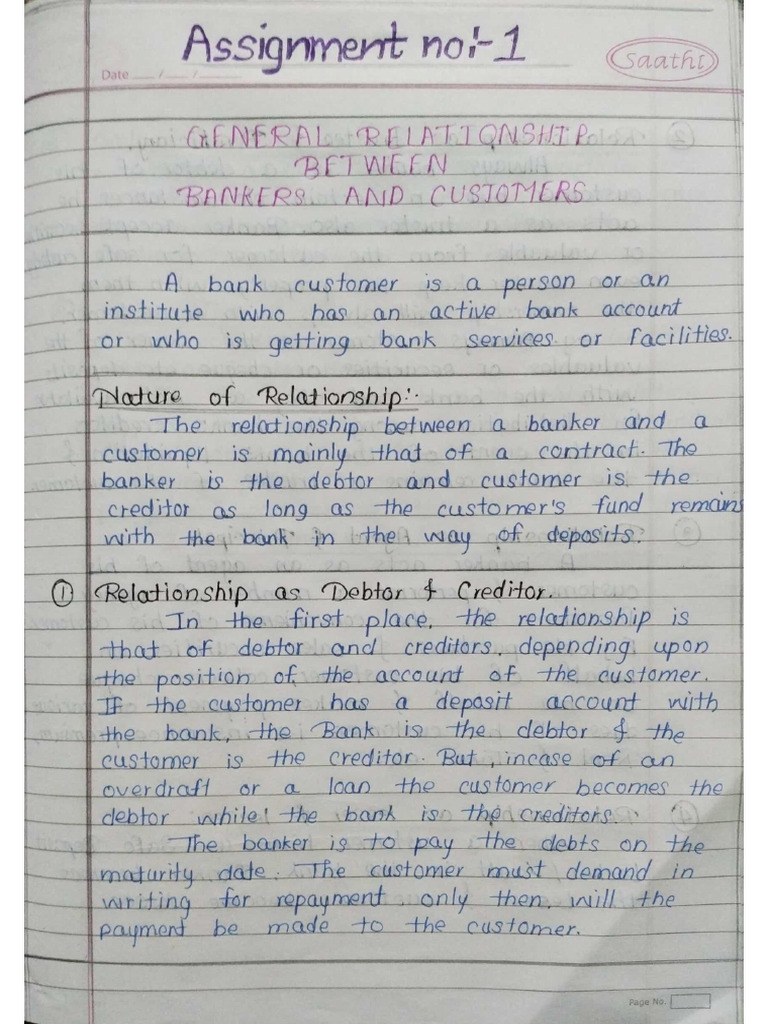 Assignment no:-1
Saathi
Date ___/___/___
GENERAL RELATIONSHIP
BETWEEN
BANKERS AND CUSTOMERS
A bank customer is a person or an
institute who has an active bank account
or who is getting bank services or facilities.
Nature of Relationship:-
The relationship between a banker and a
customer is mainly that of a contract. The
banker is the debtor and customer is the
creditor as long as the customer's fund remains
with the bank in the way of deposits.
① Relationship as Debtor & Creditor.
In the first place, the relationship is
that of debtor and creditors, depending upon
the position of the account of the customer.
If the customer has a deposit account with
the bank, the Bank is the debtor & the
customer is the creditor. But, incase of an
overdraft or a loan the customer becomes the
debtor while the bank is the creditors.
The banker is to pay the debts on the
maturity date. The customer must demand in
writing for repayment only then, will the
payment be made to the customer.
Page No.